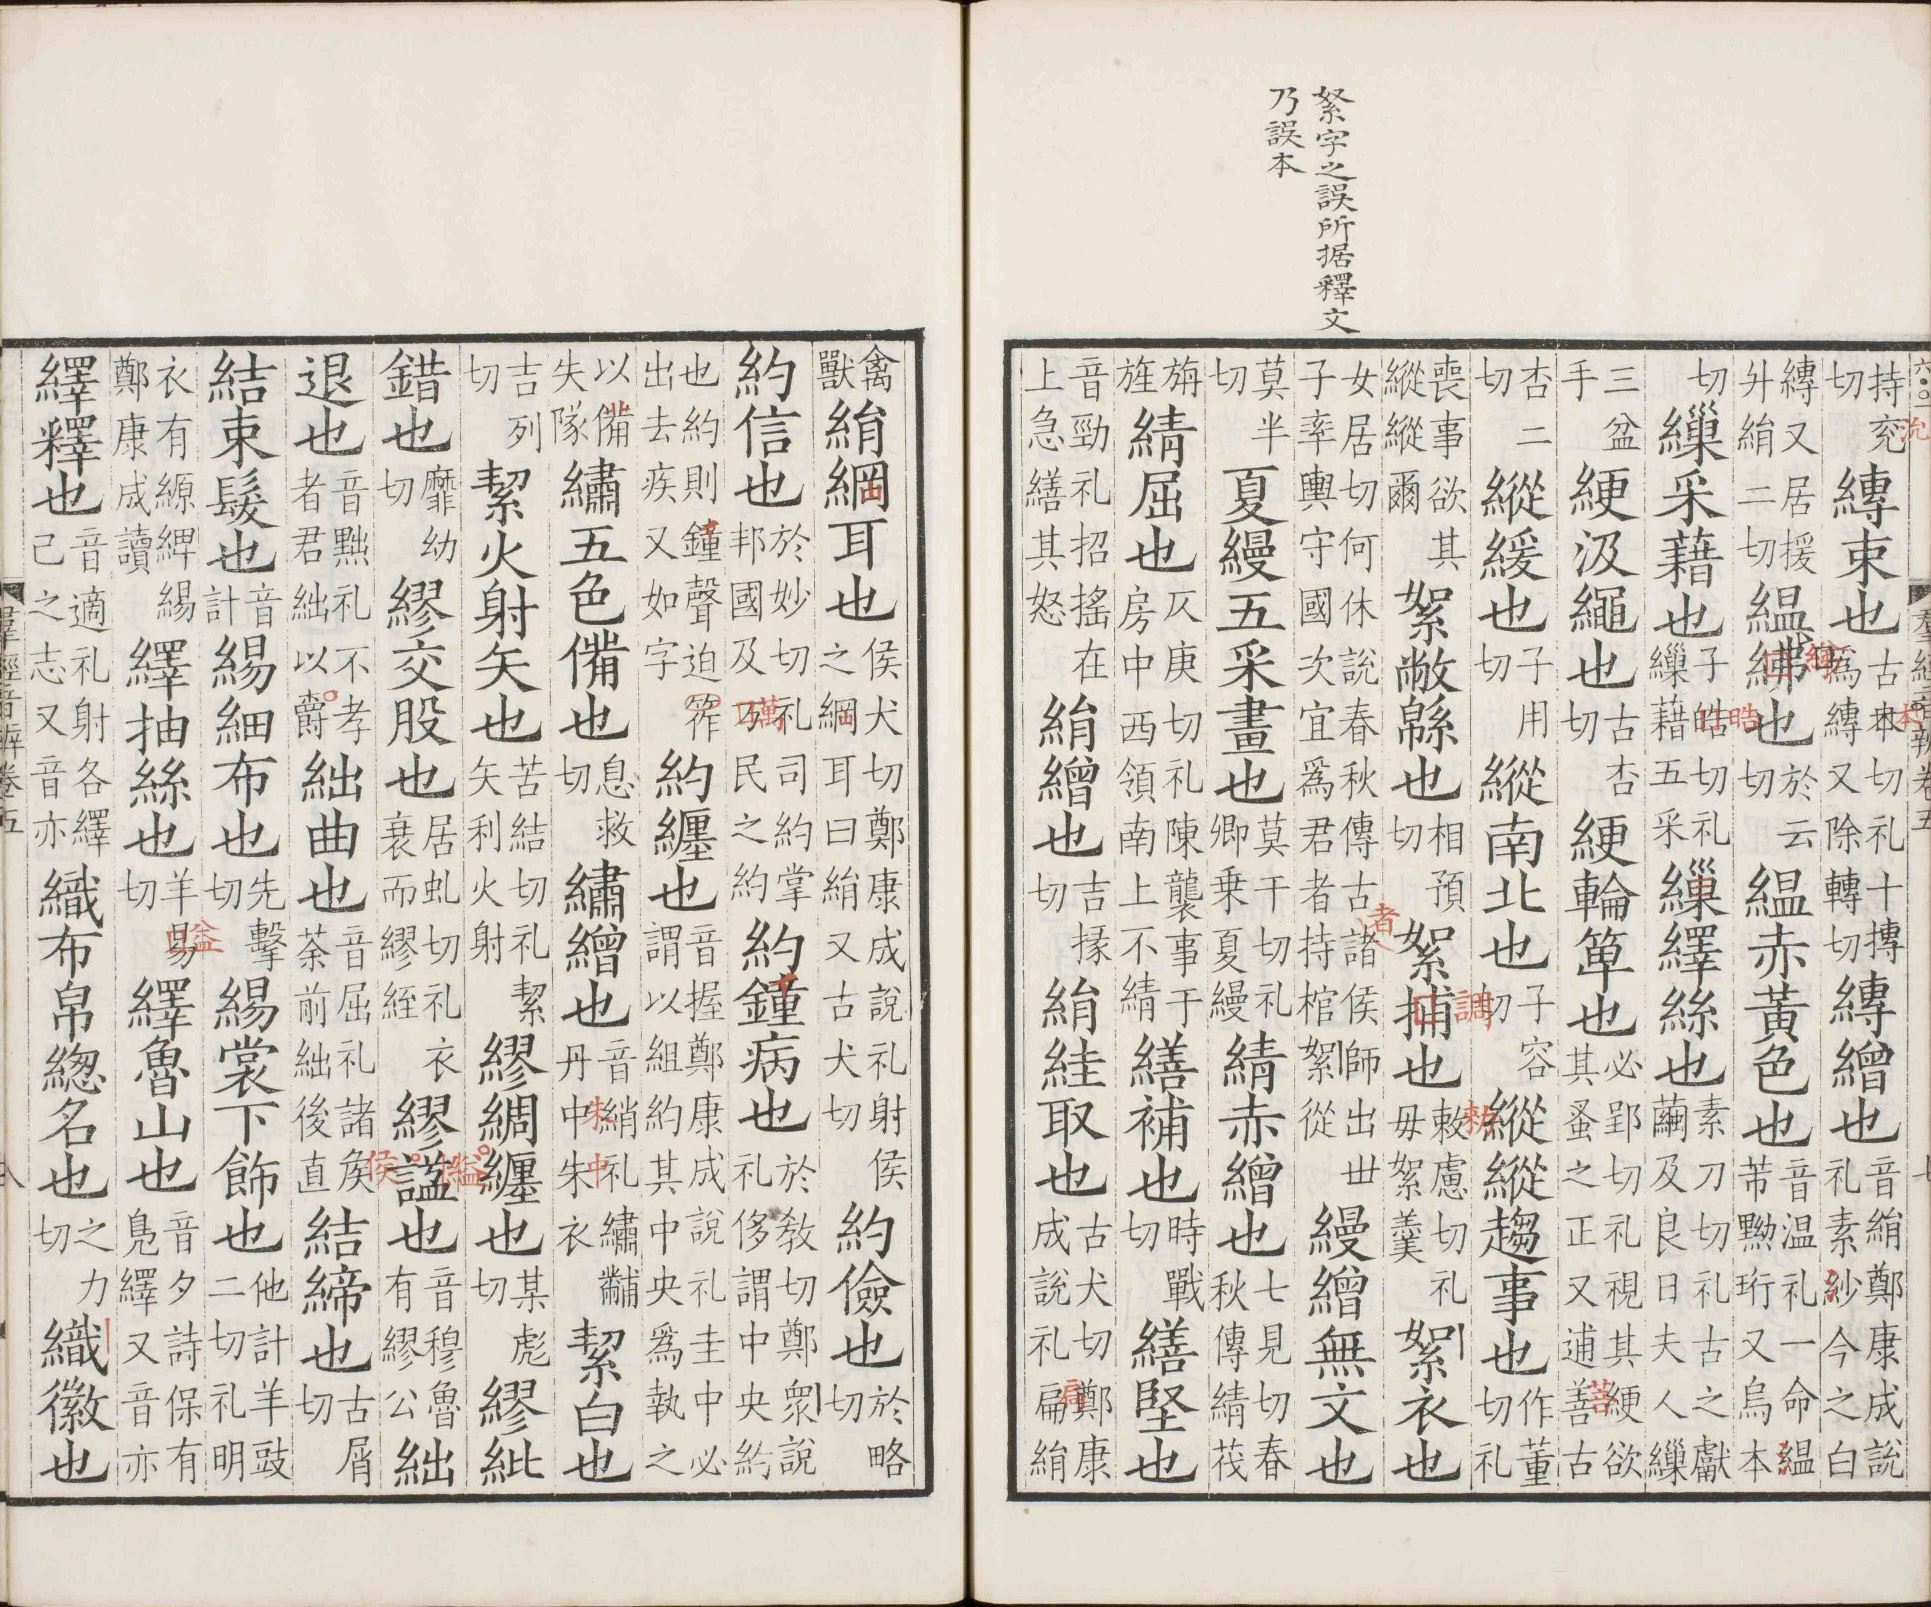 絮字之誤所据釋文
乃誤本
持兖切縳束也古本切礼十摶爲縳又除轉切縳繒也音絹鄭康成說礼素紗今之白
縳又居援升絹二切緼紼也於云切緼赤黃色也音温礼一命緼芾黝珩又烏本
切繅采藉也子皓切礼繅藉五采繅繹絲也素刀切礼古之獻繭及良日夫人繅
三盆手綆汲繩也古杏切綆輪箄也必郢切礼視其綆欲其蚤之正又逋善古
杏二切縱緩也子用切縱南北也子容切縱縱趨事也作董切礼
喪事欲其縱縱爾絮敝緜也相預切絮捕也敕慮切礼毋絮羹絮衣也
女居切何休說春秋傳古諸侯師出丗子率輿守國次宜爲君者持棺絮從縵繒無文也
莫半切夏縵五采畫也莫干切礼卿乗夏縵綪赤繒也七見切春秋傳綪茷
旃旌綪屈也仄庚切礼陳襲事于房中西領南上不綪繕補也時戰切繕堅也
音勁礼招搖在上急繕其怒絹繒也吉掾切絹絓取也古犬切鄭康成說礼扁絹
禽獸絹綱耳也侯犬切鄭康成說礼射侯之綱耳曰絹又古犬切約儉也於略切
約信也於妙切礼司約掌邦國及乃民之約約鐘病也於敎切鄭衆說礼侈謂中央約
也約則鐘聲迫筰出去疾又如字約纏也音握鄭康成說礼圭中必謂以組約其中央爲執之
以備失隊繡五色備也息救切繡繒也音綃礼繡黼丹中朱衣絜白也
吉列切絜火射矢也苦結切礼絜矢利火射繆綢纏也某彪切繆紕
錯也靡幼切繆交股也居虬切礼衣衰而繆絰繆諡也音穆魯有繆公絀
退也音黜礼不孝者君絀以爵絀曲也音屈礼諸矦荼前絀後直結締也古屑切
結束髮也音計緆細布也先擊切緆裳下飾也他計羊豉二切礼明
衣有縓綼緆鄭康成讀繹抽絲也羊易切繹魯山也音夕詩保有鳧繹又音亦
繹釋也音適礼射各繹己之志又音亦織布帛緫名也之力切織徽也